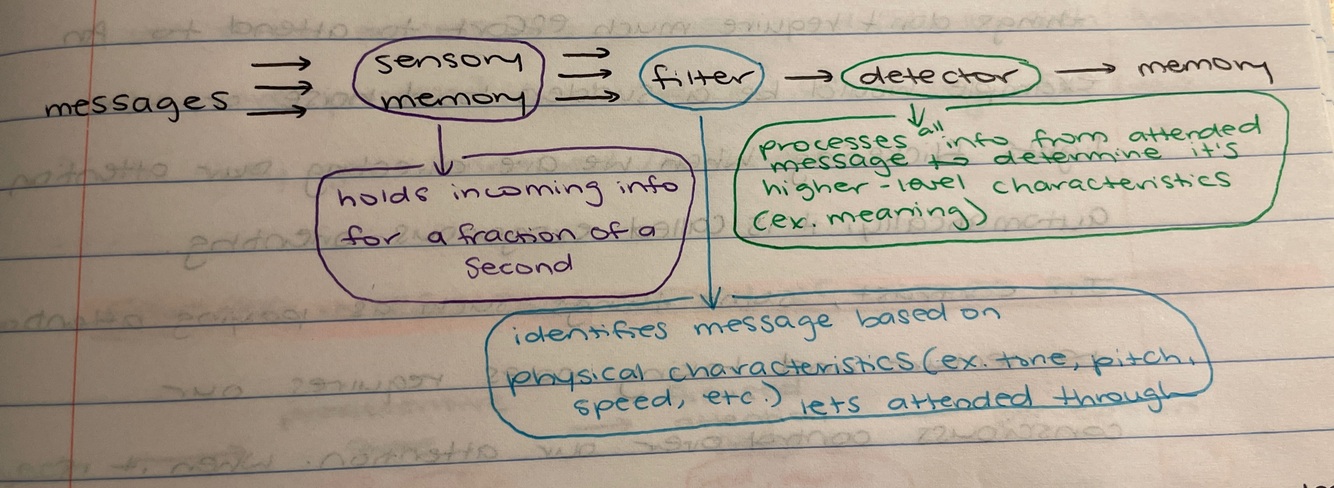 messages → sensory memory → filter → detector → memory
holds incoming info
for a fraction of a
second
processes all info from attended
message to determine it's
higher-level characteristics
(ex. meaning)
identifies message based on
physical characteristics (ex. tone, pitch,
speed, etc.) lets attended through